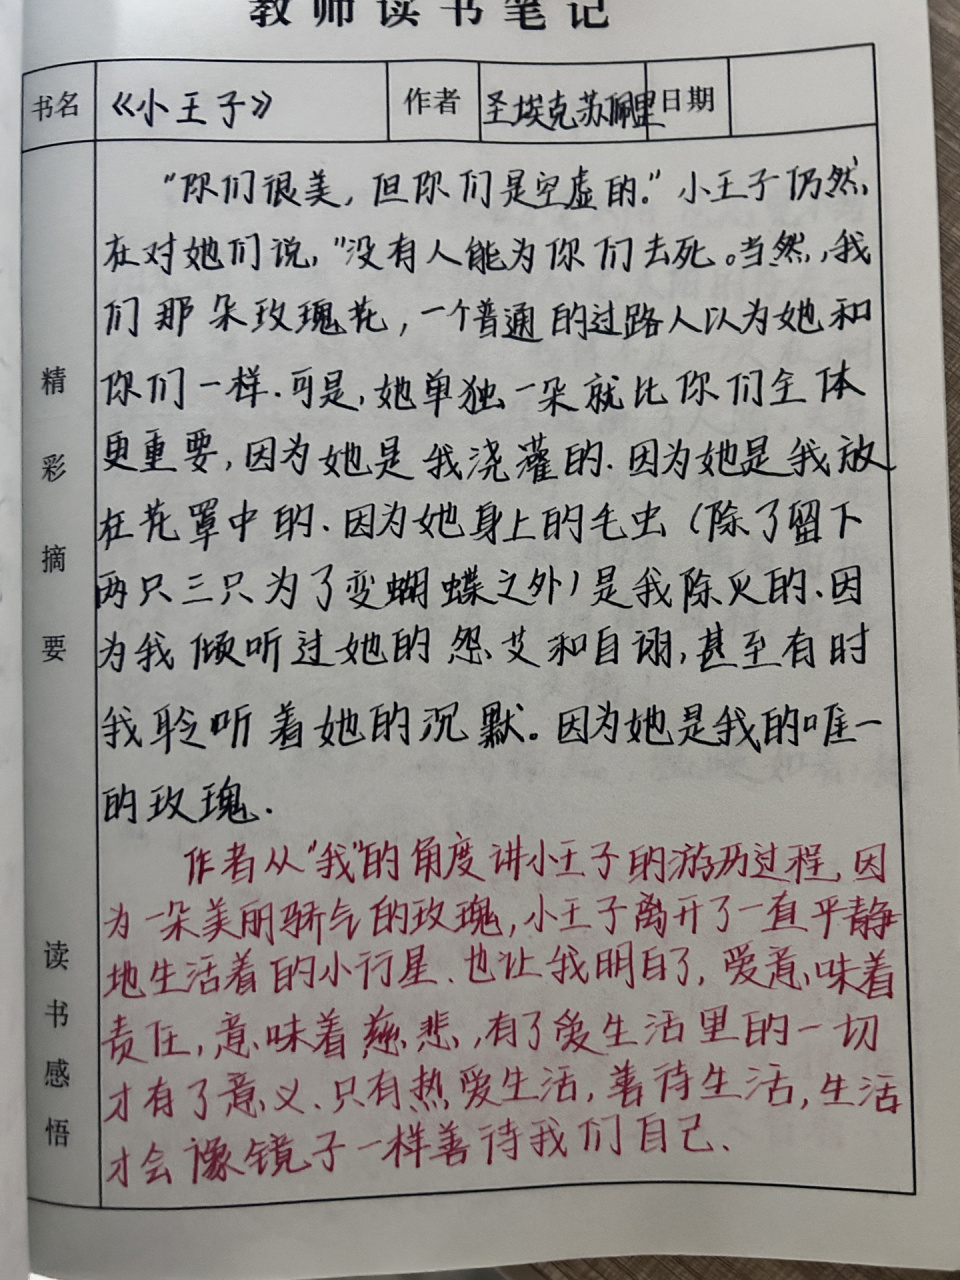 教师读书笔记
书名 《小王子》 作者 圣埃克苏珮里 日期
精彩摘要
“你们很美，但你们是空虚的.”小王子仍然，
在对她们说，“没有人能为你们去死。当然，，我
们那朵玫瑰花，一个普通的过路人以为她和
你们一样.可是，她单独一朵就比你们全体
更重要，因为她是我浇灌的.因为她是我放
在花罩中的.因为她身上的毛虫（除了留下
两只三只为了变蝴蝶之外）是我除灭的.因
为我倾听过她的怨艾和自诩，甚至有时
我聆听着她的沉默。因为她是我的唯一
的玫瑰.
读书感悟
作者从“我”的角度讲小王子的游历过程，因
为一朵美丽骄气的玫瑰，小王子离开了一直平静
地生活着的小行星.也让我明白了，爱意味着
责任，意味着慈悲，有了爱生活里的一切
才有了意义.只有热爱生活，善待生活，生活
才会像镜子一样善待我们自己.